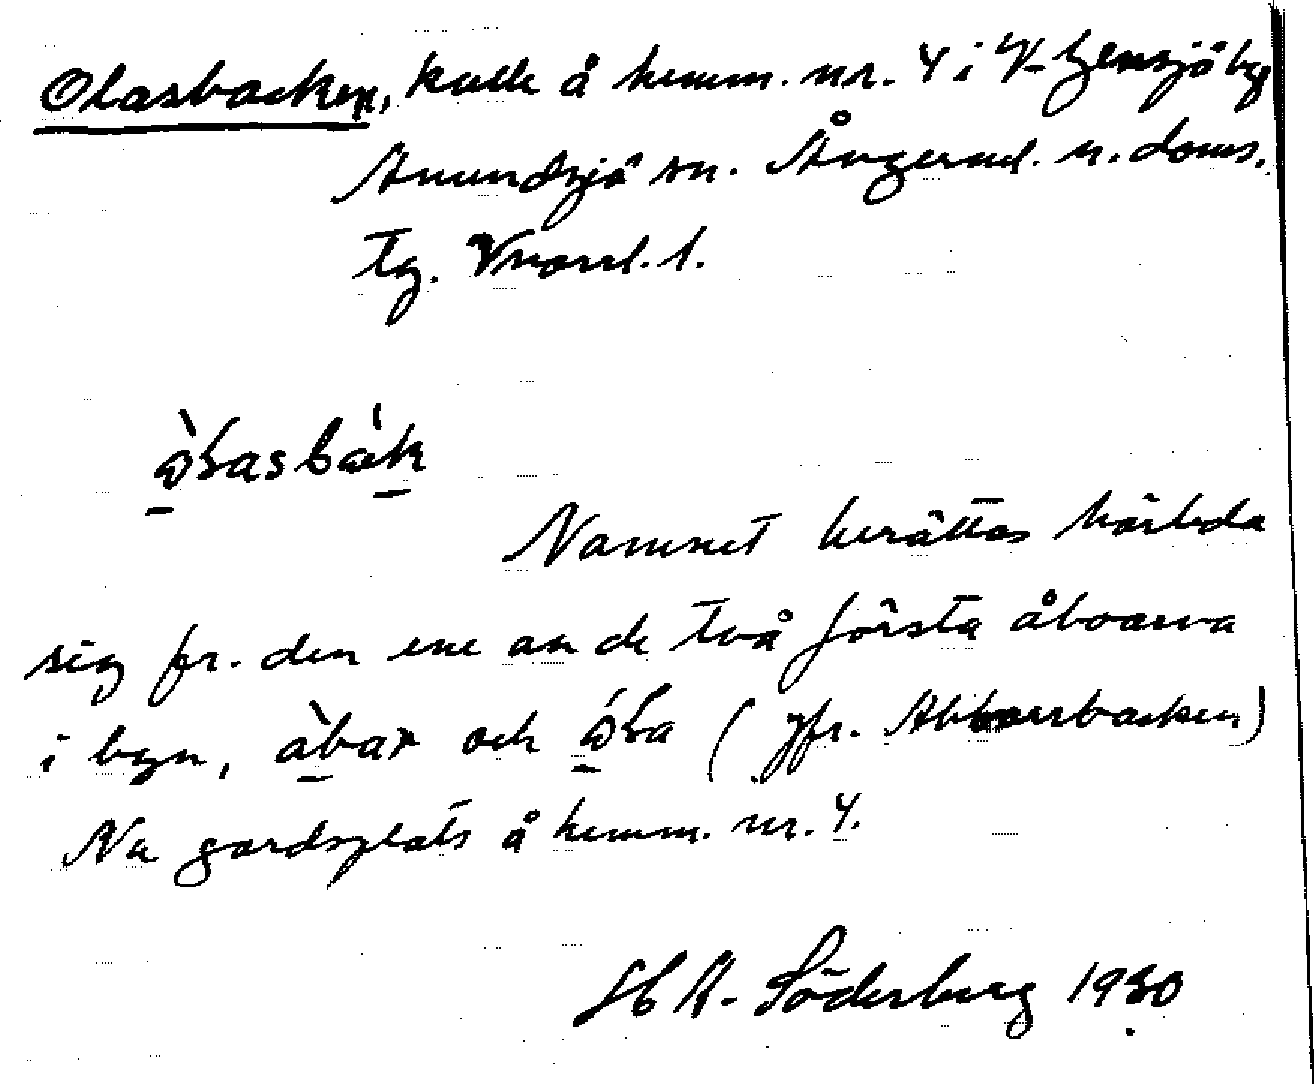 Olasbacken, kulle å hemm. nr. 4 i V. Gensjö by
Anundsjö sn. Ångerml. n. doms.
tg. Vnorrl. l.
ò̱ɫasbá̱k
Namnet berättas härleda
sig fr. den ene av de två första åboarna
i byn, à̱bar och ó̱ɫa (jfr. Abborrbacken)
Nu gårdsplats å hemm. nr. 4.
H A. Söderberg 1930